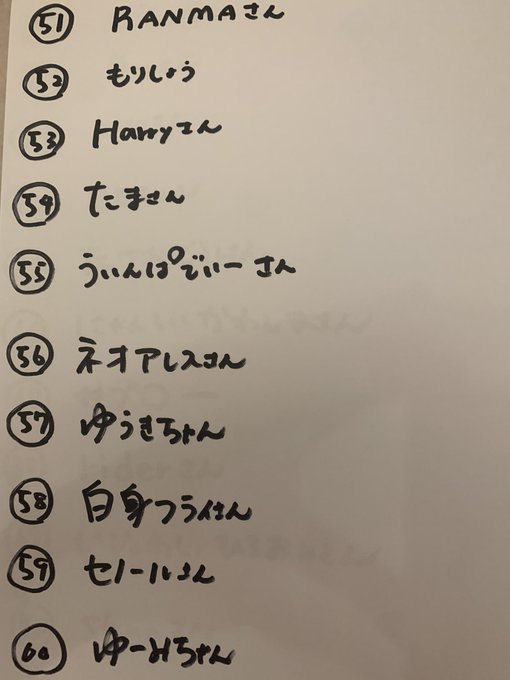 51 RANMAさん
52 もりしょう
53 Harryさん
54 たまさん
55 ういんぱでぃーさん
56 ネオアレスさん
57 ゆうきちゃん
58 白身フライさん
59 セノールさん
60 ゆーみちゃん